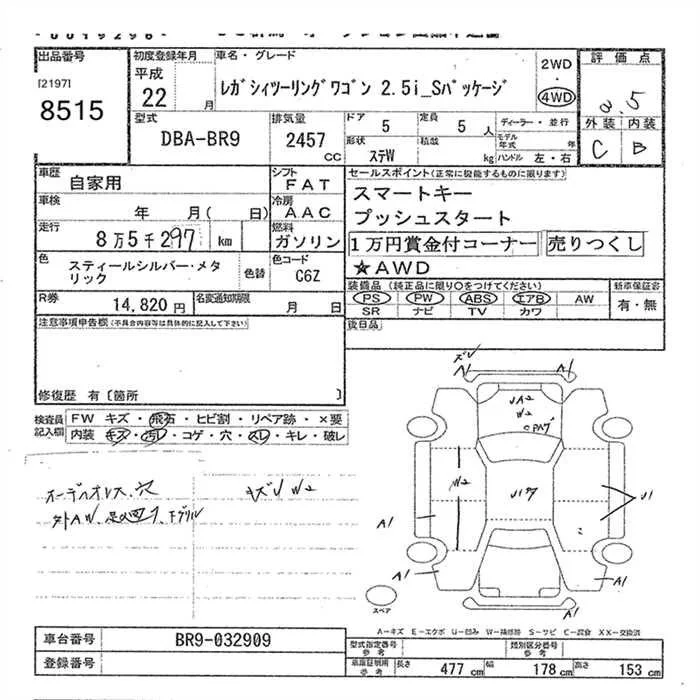 0019296
出品番号
[2197]
8515
初度登録年月
平成
22 月
車名・グレード
レガシィツーリングワゴン 2.5i_Sパッケージ
2WD
・
4WD
評価点
3.5
外装 内装
C B
型式
DBA-BR9
排気量
2457
CC
ドア
5
定員
5
人
形状
ステW
積載
kg
ディーラー・並行
モデル
年式 年
ハンドル 左・右
車歴
自家用
シフト
FAT
車検
年 月( 日)
冷房
AAC
走行
8万5千297 km
燃料
ガソリン
色
スティールシルバー・メタ
リック
色替
色コード
C6Z
R券
14,820 円
名変通知期限
月 日
セールスポイント(正常に機能するものに限ります)
スマートキー
プッシュスタート
1万円賞金付コーナー 売りつくし
★AWD
装備品(純正品に限り○をつけてください)
PS PW ABS エアB AW
SR ナビ TV カワ
新車保証書
有・無
後日品
注意事項申告欄(不具合内容等は具体的に記入して下さい)
修復歴 有〔箇所 〕
検査員
記入欄
FW キズ・飛石・ヒビ割・リペア跡・×要
内装 キズ・汚レ・コゲ・穴・スレ・キレ・破レ
オーデオレス、穴
キズU W2
外AW、
ズレ
A1
A1
UA2
W2
W2
U1
A1
A1
A1
A1
スペア
A-キズ E-エクボ U-凹み W-補修跡 S-サビ C-腐食 XX-交換済
車台番号
BR9-032909
登録番号
型式指定番号
参考
類別区分番号
参考
車庫証明用
参考
長さ 477 cm 幅 178 cm 高さ 153 cm